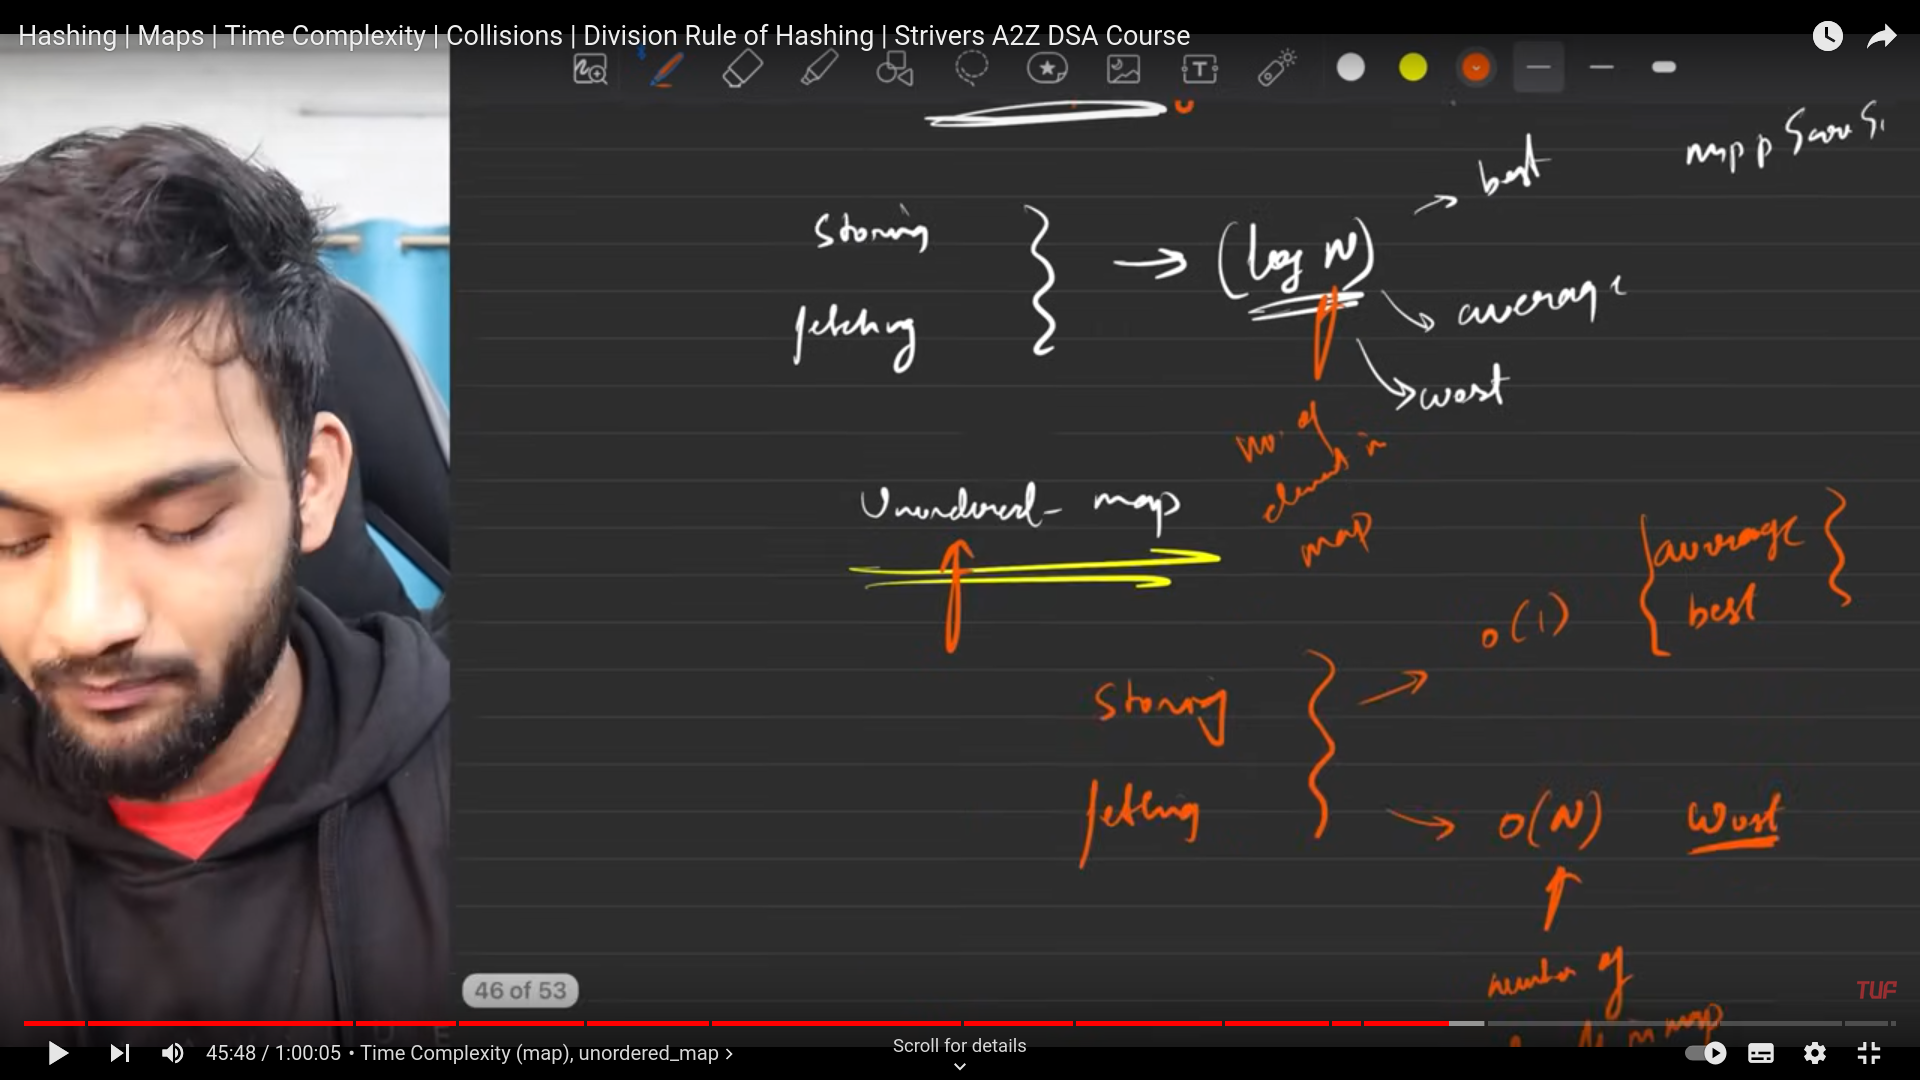 Hashing | Maps | Time Complexity | Collisions | Division Rule of Hashing | Strivers A2Z DSA Course
best
storing
(log N)
average
fetching
worst
no. of
element in
map
Unordered- map
average
best
O(1)
storing
fetching
O(N) worst
number of
in map
46 of 53
TUF
45:48 / 1:00:05 • Time Complexity (map), unordered_map
Scroll for details